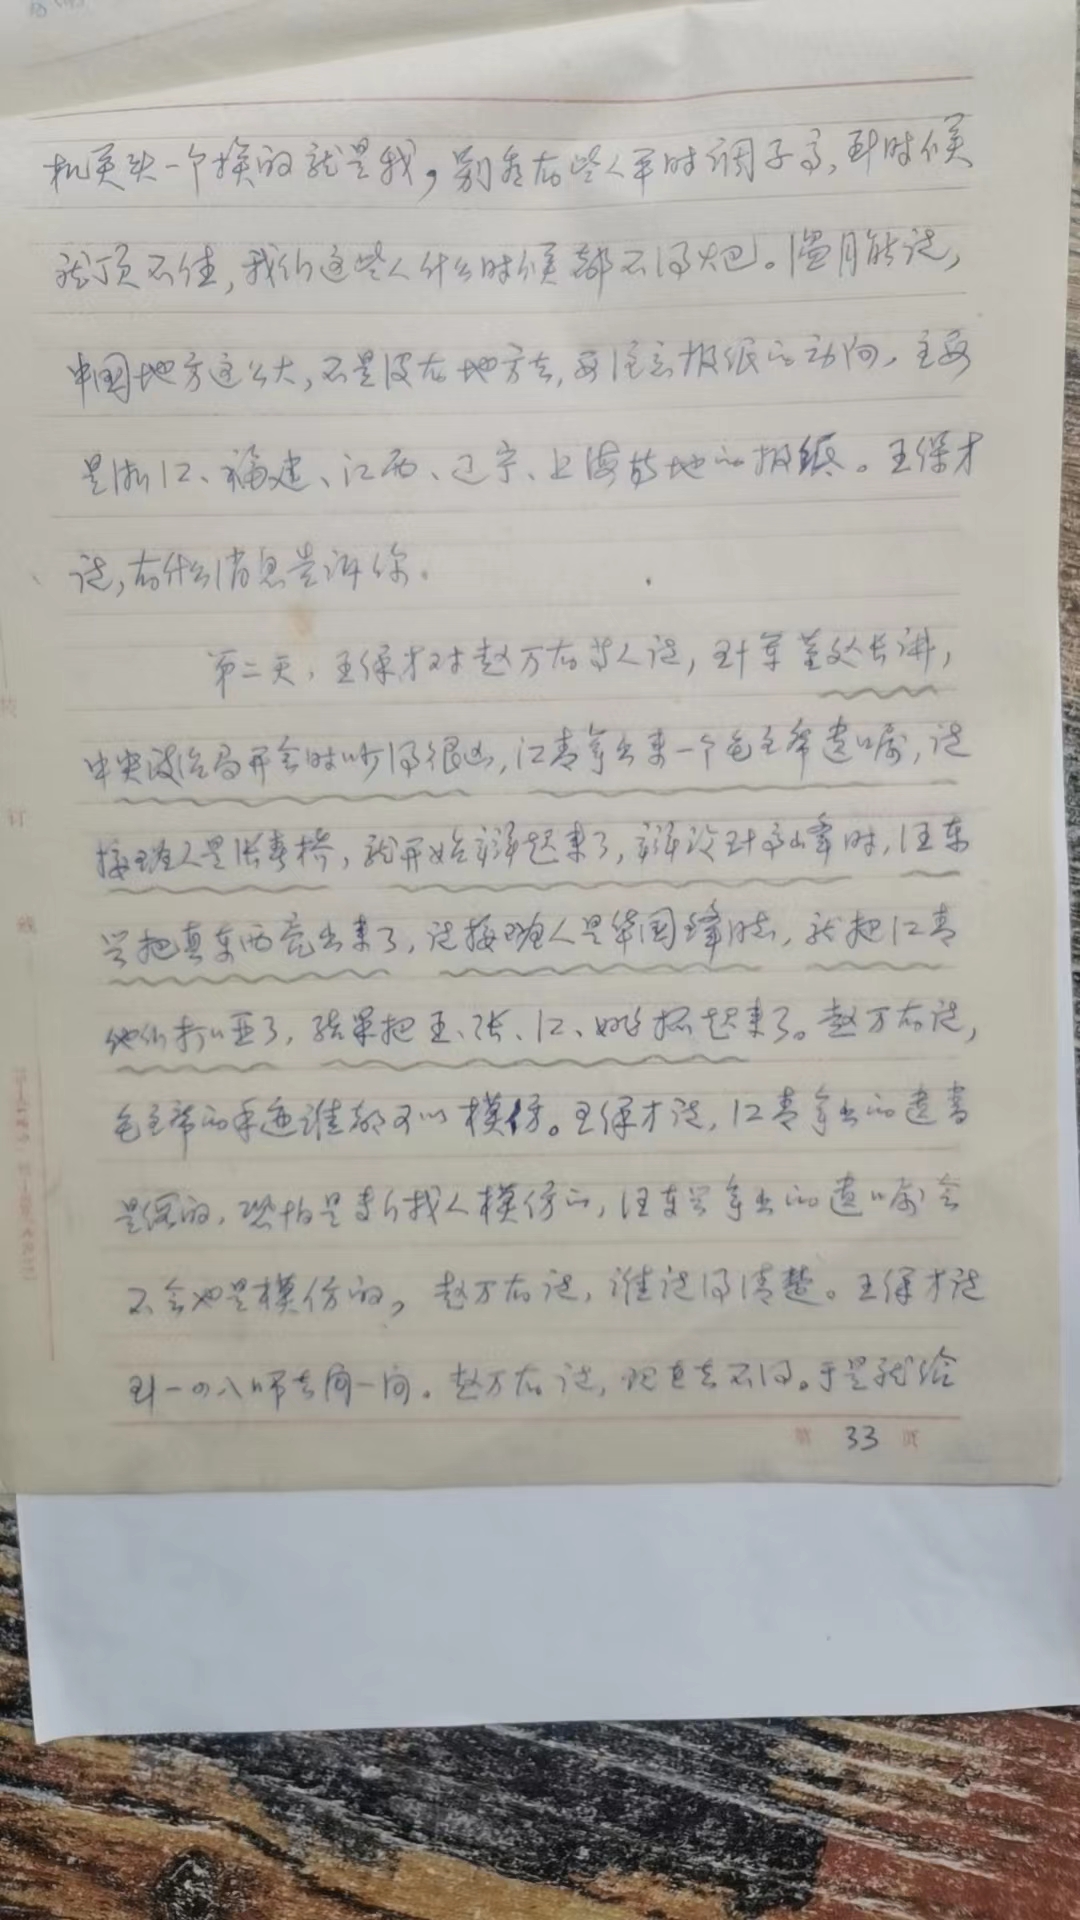 机关头一个挨的就是我，别看有些人平时调子高，到时候
就顶不住，我们这些人什么时候都不得火巴。温月能说，
中国地方这么大，不是没有地方去，要注意报纸的动向，主要
是浙江、福建、江西、辽宁、上海等地的报纸。王保才
说，有什么消息告诉你。
第二天，王保才对赵万有等人说，十军董处长讲，
中央政治局开会时吵得很凶，江青拿出来一个毛主席遗嘱，说
接班人是张春桥，就开始辩起来了，辩论到高峰时，汪东
兴把真东西亮出来了，说接班人是华国锋同志，就把江青
他们打哑了，结果把王、张、江、姚抓起来了。赵万有说，
毛主席的手迹谁都可以模仿。王保才说，江青拿出的遗书
是假的，恐怕是专门找人模仿的，汪东兴拿出的遗嘱会
不会也是模仿的，赵万有说，谁说得清楚。王保才说
到一四八师去问一问。赵万有说，现在去不得。于是就给
第 33 页
订
线